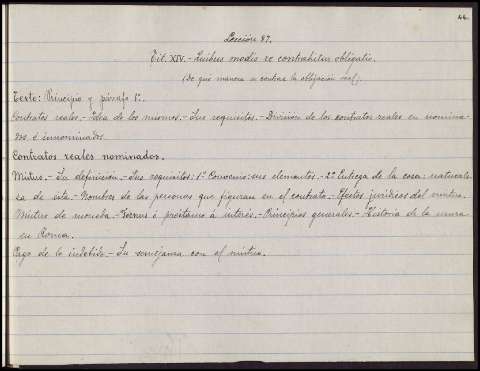 44.
Lección 87.
Tít. XIV.- Quibus modis re contrahitur obligatio.
(De qué manera se contrae la obligación real).
Texto: Principio y párrafo 1º.
Contratos reales.- Idea de los mismos.- Sus requisitos.- División de los contratos reales en nomina-
dos é innominados.
Contratos reales nominados.
Mutuo.- Su definición.- Sus requisitos: 1º Convenio: sus elementos.- 2º Entrega de la cosa: naturale-
za de ésta.- Nombres de las personas que figuran en el contrato.- Efectos jurídicos del mutuo.
Mutuo de moneda.- Foenus ó préstamo á interés.- Principios generales.- Historia de la usura
en Roma.
Pago de lo indebido.- Su semejanza con el mutuo.